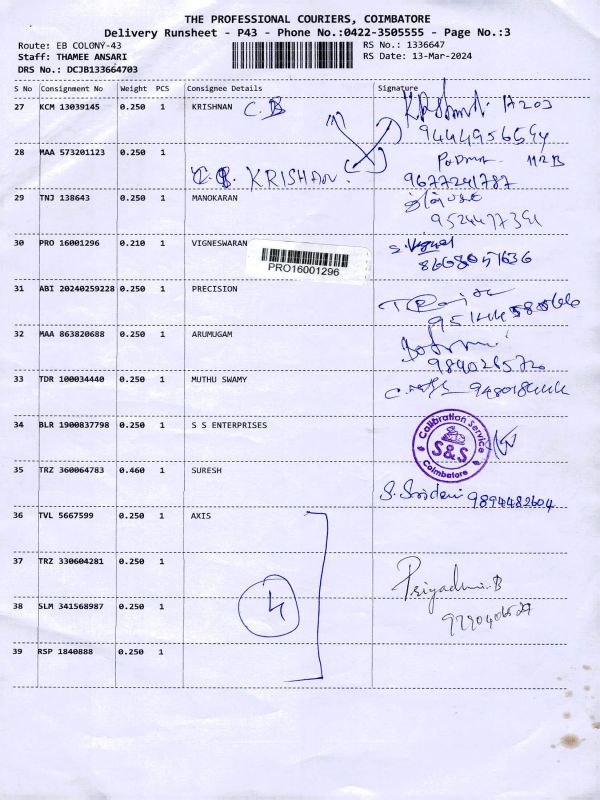 THE PROFESSIONAL COURIERS, COIMBATORE
Delivery Runsheet - P43 - Phone No.:0422-3505555 - Page No.:3
Route: EB COLONY-43
Staff: THAMEE ANSARI
DRS No.: DCJB133664703
RS No.: 1336647
RS Date: 13-Mar-2024
S No Consignment No Weight PCS Consignee Details Signature
27 KCM 13039145 0.250 1 KRISHNAN C.B
A203
28 MAA 573201123 0.250 1
C.B. KRISHAN.
112B
9677241787
29 TNJ 138643 0.250 1 MANOKARAN
30 PRO 16001296 0.210 1 VIGNESWARAN
PRO16001296
8668051636
31 ABI 20240259228 0.250 1 PRECISION
32 MAA 863820688 0.250 1 ARUMUGAM
33 TDR 100034440 0.250 1 MUTHU SWAMY
34 BLR 1900837798 0.250 1 S S ENTERPRISES
Calibration Service
S&S
Coimbatore
35 TRZ 360064783 0.460 1 SURESH
9894482604
36 TVL 5667599 0.250 1 AXIS
37 TRZ 330604281 0.250 1
Priyadh B
38 SLM 341568987 0.250 1
4
39 RSP 1840888 0.250 1